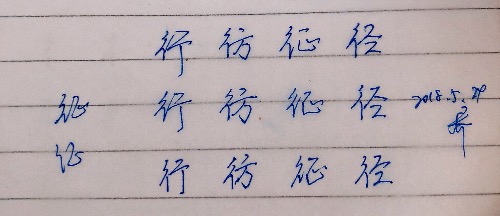 行 彷 征 径
征 行 彷 征 径 2018.5.29
征 行 彷 征 径